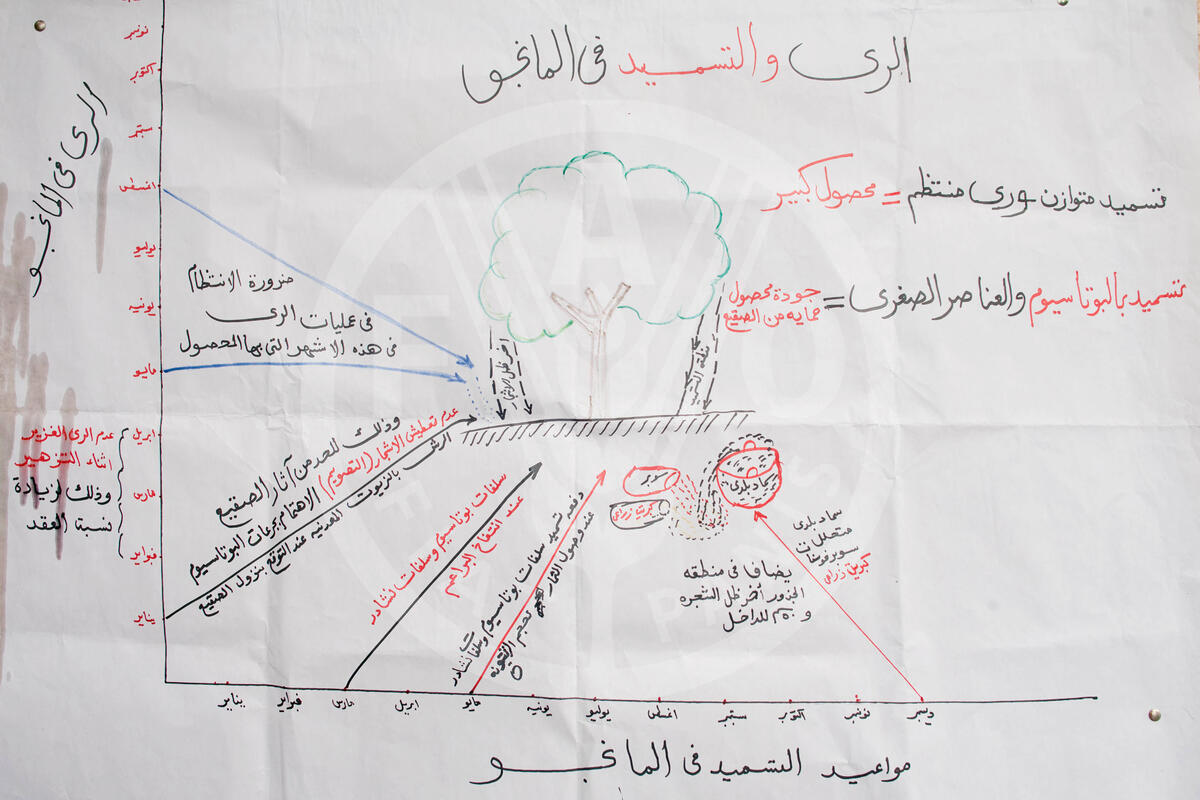 الرى والتسميد فى المانجو
تسميد متوازن ورى منتظم = محصول كبير
تسميد بالبوتاسيوم والعناصر الصغرى = جودة محصول
حمايه من الصقيع
الرى فى المانجو
نوفمبر
اكتوبر
سبتمبر
اغسطس
يوليو
يونيه
مايو
ابريل
مارس
فبراير
يناير
ضرورة الانتظام
فى عمليات الرى
فى هذه الاشهر التى بها المحصول
عدم الرى الغزير
اثناء التزهير
وذلك لزيادة
نسبة العقد
وذلك للحد من آثار الصقيع
عدم تعطيش الاشجار (التصويم) الاهتمام بجرعات البوتاسيوم
الرش بالزيوت المعدنيه عند التوقع بنزول الصقيع
اخر ظل الاشجار
سلفات بوتاسيوم وسلفات نشادر
عند انتفاخ البراعم
دفعه تسميد سلفات بوتاسيوم وسلفات نشادر
عند وصول الثمار لحجم الزيتونه
سوبر
كبريت زراعى
سماد بلدى
سماد بلدى
متحللات
سوبر فوسفات
كبريت زراعى
يضاف فى منطقه
الجذور أخر ظل الشجره
للداخل
يناير
فبراير
مارس
ابريل
مايو
يونيه
يوليو
اغسطس
سبتمبر
اكتوبر
نوفمبر
ديسمبر
مواعيد التسميد فى المانجو
FAO